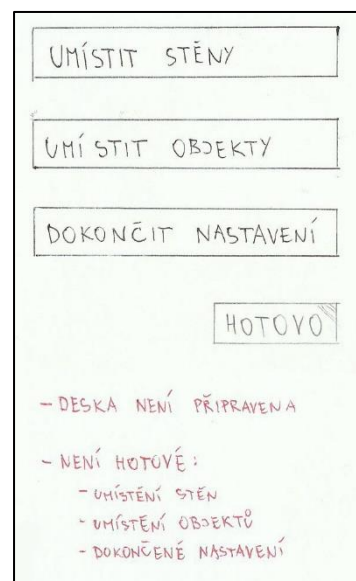 UMÍSTIT STĚNY
UMÍSTIT OBJEKTY
DOKONČIT NASTAVENÍ
HOTOVO
- DESKA NENÍ PŘIPRAVENA
- NENÍ HOTOVÉ:
- UMÍSTĚNÍ STĚN
- UMÍSTĚNÍ OBJEKTŮ
- DOKONČENÉ NASTAVENÍ